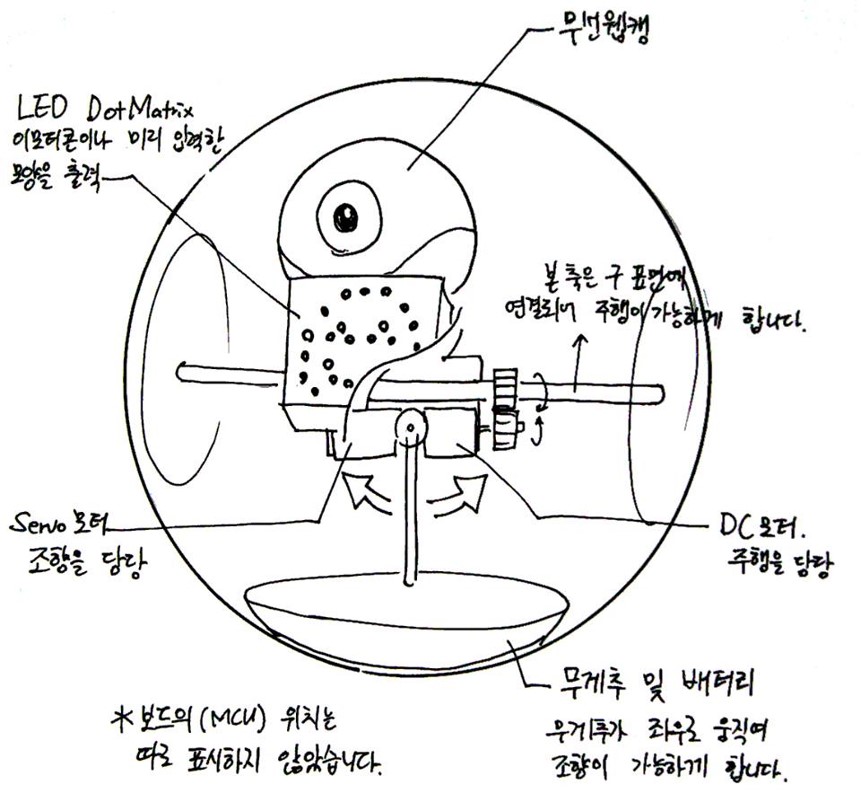 무선웹캠
LED DotMatrix
이모티콘이나 미리 입력한
모양을 출력
본 축은 구 표면에
연결되어 주행이 가능하게 합니다.
Servo 모터
조향을 담당
DC 모터.
주행을 담당
무게추 및 배터리
무게추가 좌우로 움직여
조향이 가능하게 합니다.
* 보드의(MCU) 위치는
따로 표시하지 않았습니다.